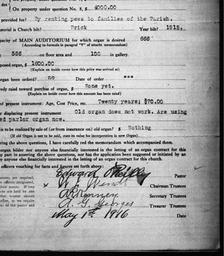 on property under question No. 8, $ 4000.00
provided, By renting pews to families of the Parish.
material is Church built? Brick Year built? 1818.
capacity of MAIN AUDITORIUM for which organ is desired 666
(According to formula in paragraph "F" of attached memorandum)
566 on floor area and 100 in gallery.
proposed organ, $ 1600.00
(Explain on inside cover how this price was arrived at)
has organ been ordered? no Date of order ***
already raised toward purchase of organ, $ None yet.
(Explain on inside cover how this amount has been raised)
of present instrument: Age, Cost Price, etc. Twenty years; $70.00
for displacing present instrument Old organ does not work. Are using
parlor organ now.
is to be realized by sale of (or from insurance on) old organ? $ Nothing
(If Old Organ is not to be sold, state value for incorporating in new one, $ )
answering the above questions, I have carefully read the memorandum which accompanied them.
anyone else financially interested in the letting of an organ contract for this church
part in answering the above questions, nor has the application been suggested or initiated by an
by anyone else financially interested in the letting of organ contract for this church.
officers vouching for facts and figures set forth above.
Edward Pastor
Chairman Trustees
Secretary Trustees
Treasurer Trustees
May 1st 1916